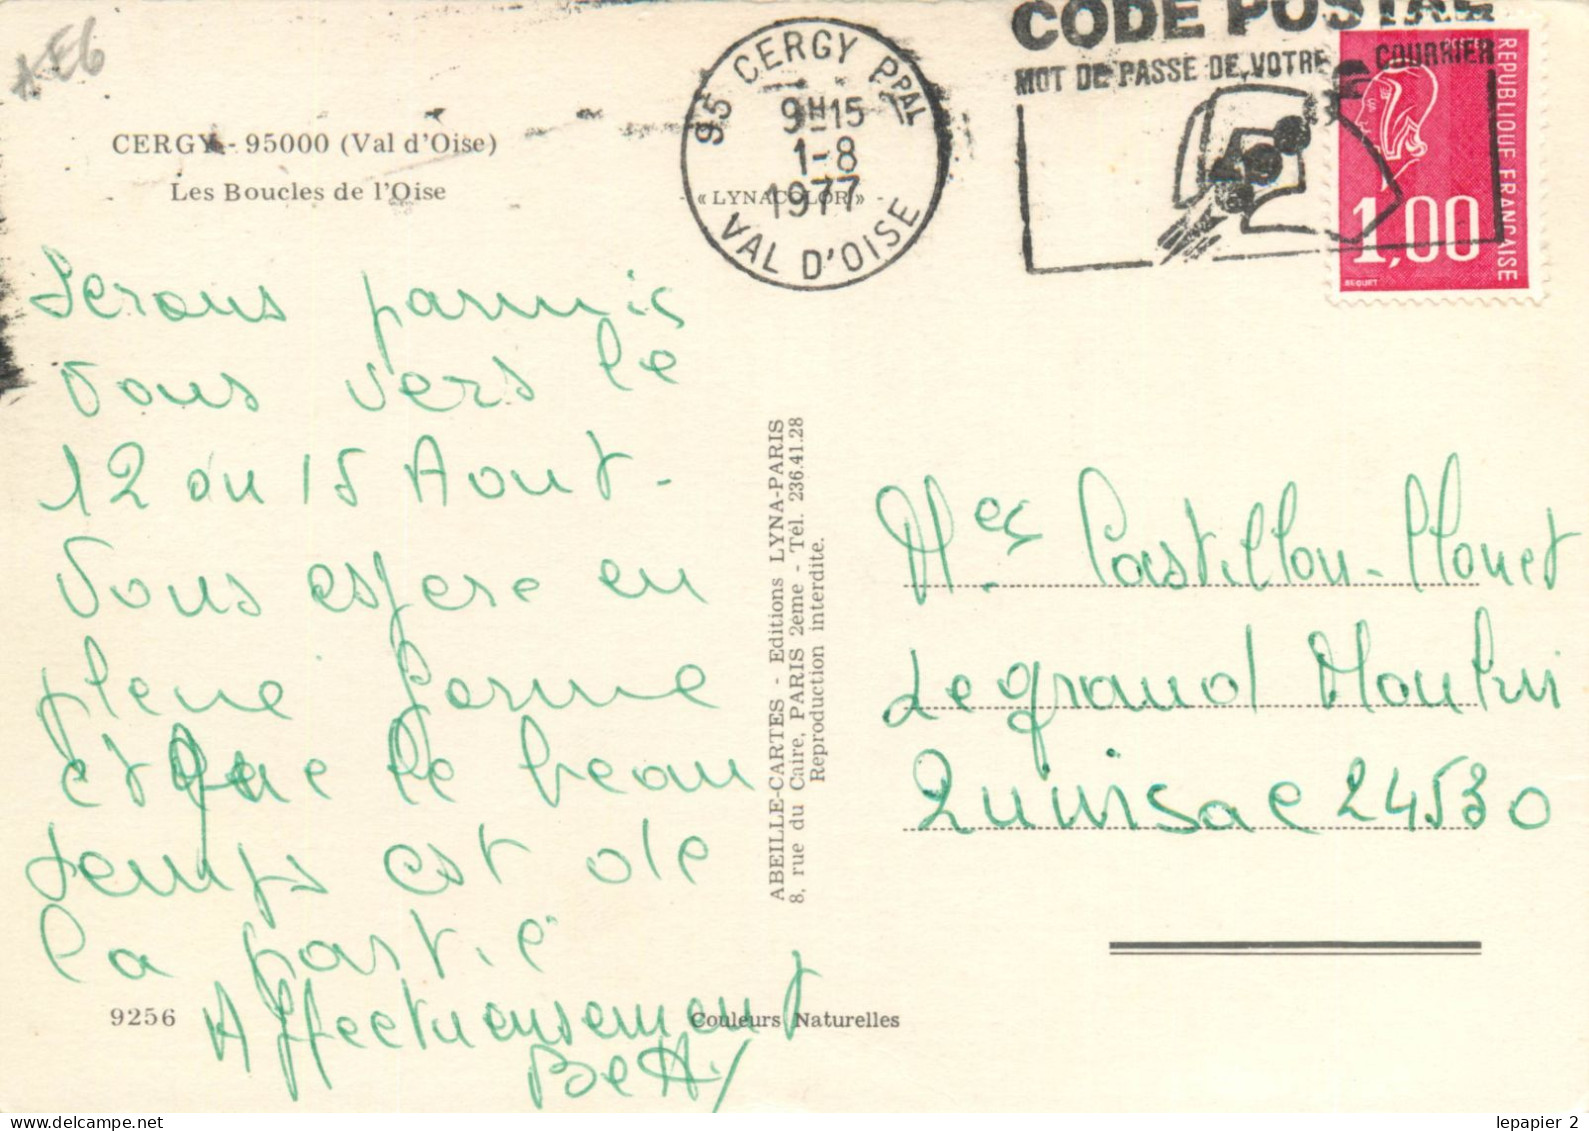 AE6
CERGY - 95000 (Val d'Oise)
Les Boucles de l'Oise
« LYNACOLOR »
95 CERGY PPAL
9H15
1-8
1977
VAL D'OISE
CODE POSTAL
MOT DE PASSE DE VOTRE COURRIER
POSTES
REPUBLIQUE FRANCAISE
1,00
BEQUET
Serons parmis
vous vers le
12 ou 15 Aout -
Vous espere en
pleine forme
et que le beau
temps est de
la partie
Affectueusement
Betty
ABEILLE-CARTES - Editions LYNA-PARIS
8, rue du Caire, PARIS 2eme - Tél. 236.41.28
Reproduction interdite.
Mes Castillon-Monet
Le grand Moulin
Quinsac 24530
9256
Couleurs Naturelles
lepapier 2